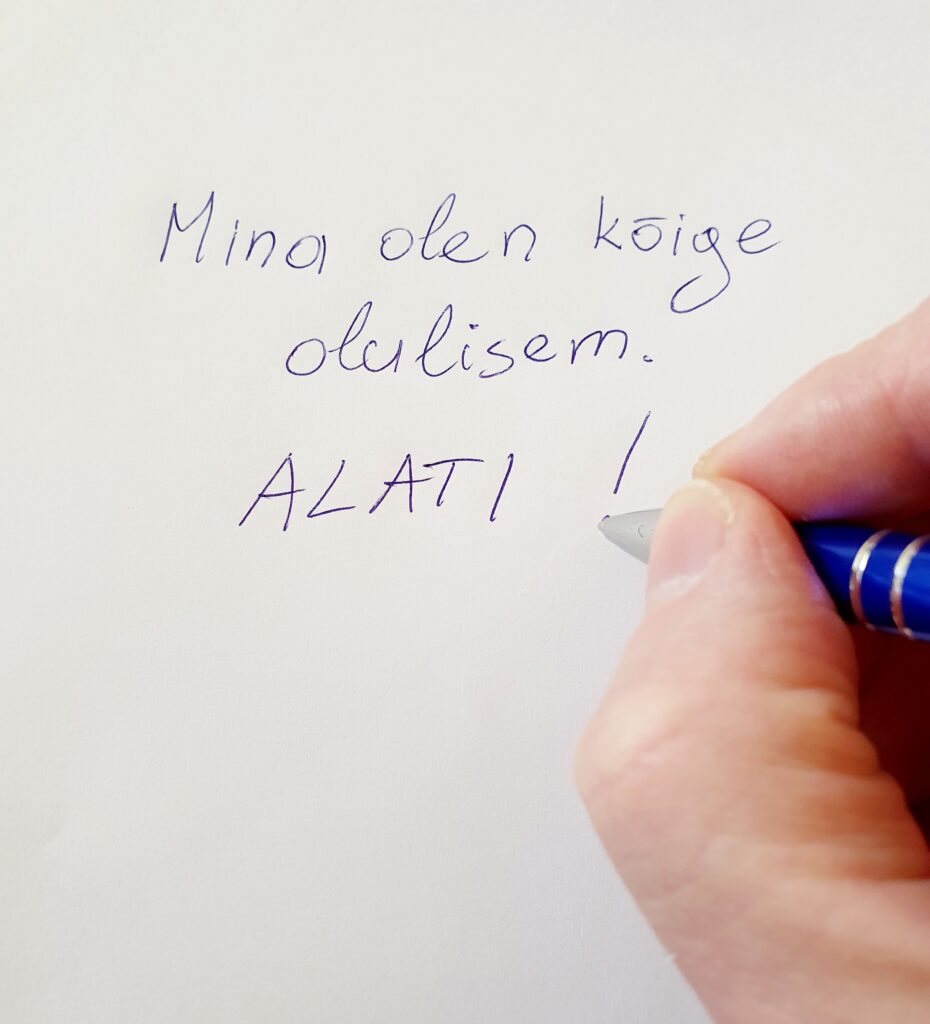 Mina olen kõige
olulisem.
ALATI !